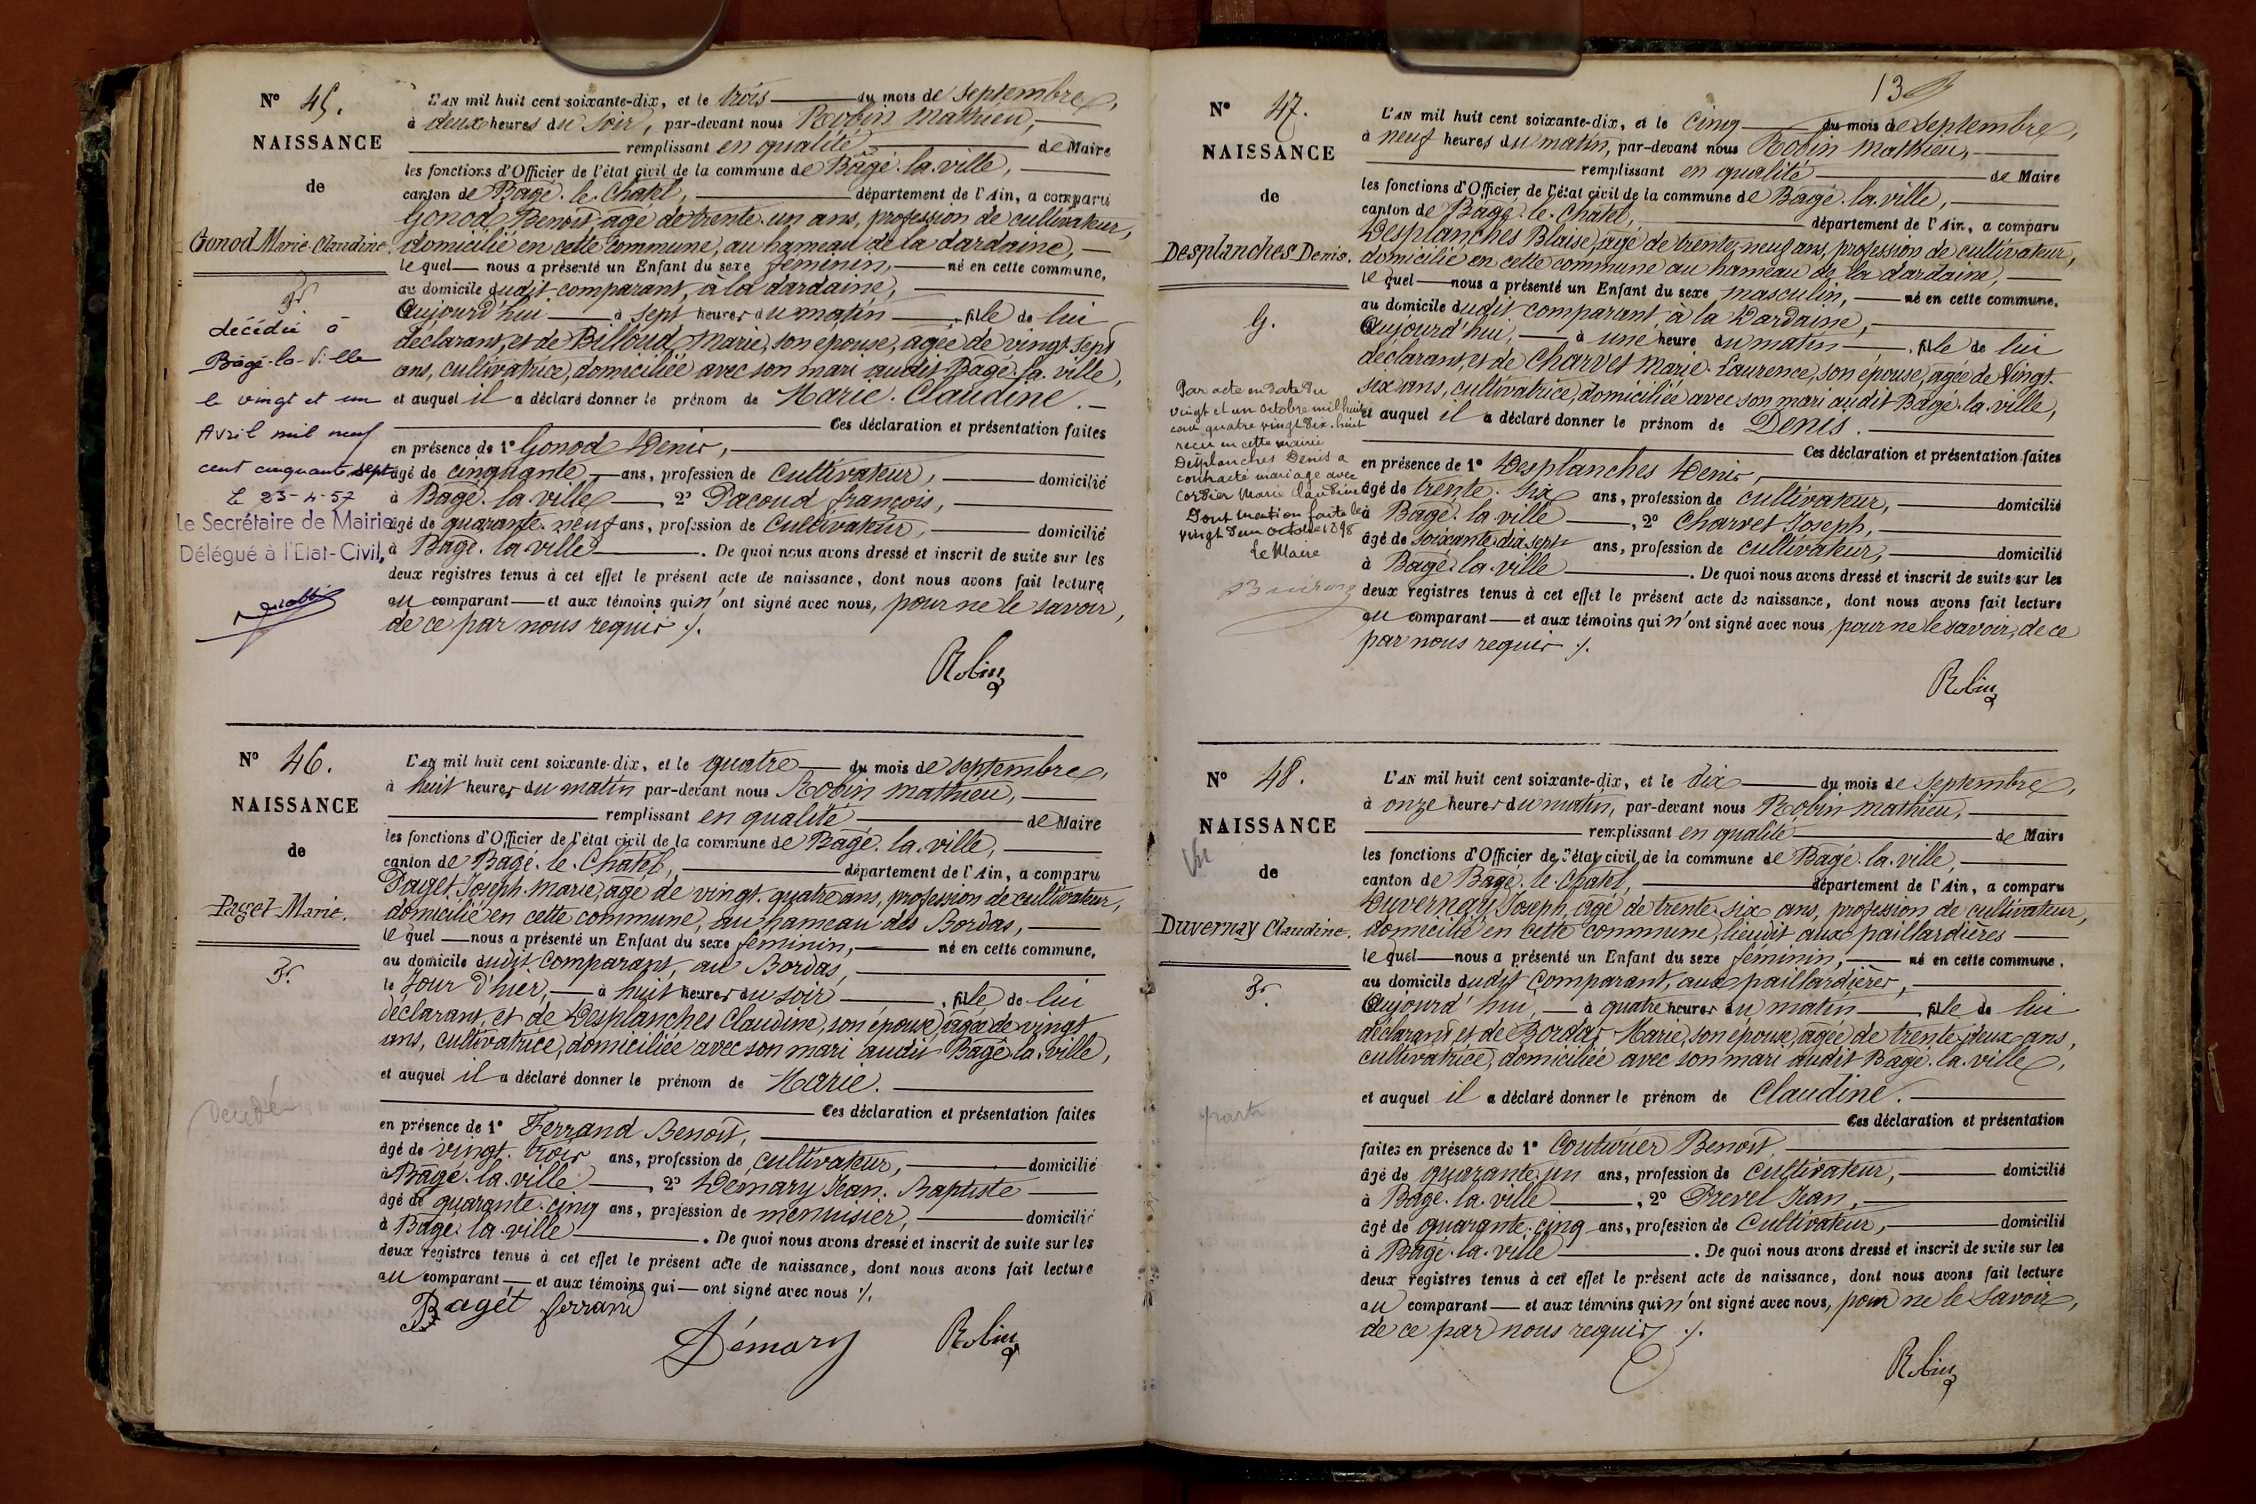 N° 45.
NAISSANCE
de
Gonod Marie-Claudine.
décédée à
Bâgé-la-Ville
le vingt et un
Avril mil neuf
cent cinquante sept
Le 23-4-57
Le Secrétaire de Mairie
Délégué à l'Etat-Civil,
L'AN mil huit cent soixante-dix, et le trois du mois de septembre,
à deux heures du soir, par-devant nous Robin Mathieu,
remplissant en qualité de Maire
les fonctions d'Officier de l'état civil de la commune de Bâgé-la-ville,
canton de Bâgé-le-Chatel, département de l'Ain, a comparu
Gonod Benoit, âgé de trente-un ans, profession de cultivateur,
domicilié en cette commune, au hameau de la dardaine,
le quel nous a présenté un Enfant du sexe féminin, né en cette commune,
au domicile dudit comparant, à la dardaine,
Aujourd'hui à sept heures du matin, fille de lui
déclarant, et de Billoud Marie, son épouse, agée de vingt-sept
ans, cultivatrice, domiciliée avec son mari audit Bâgé-la-ville,
et auquel il a déclaré donner le prénom de Marie-Claudine.
Ces déclaration et présentation faites
en présence de 1° Gonod Denis,
âgé de cinquante ans, profession de cultivateur, domicilié
à Bagé-la-ville 2° Pacoud françois,
âgé de quarante-neuf ans, profession de Cultivateur, domicilié
à Bagé-la-ville. De quoi nous avons dressé et inscrit de suite sur les
deux registres tenus à cet effet le présent acte de naissance, dont nous avons fait lecture
au comparant et aux témoins qui n'ont signé avec nous, pour ne le savoir,
de ce par nous requis ./.
Robin
N° 46.
NAISSANCE
de
Paget Marie.
L'AN mil huit cent soixante-dix, et le quatre du mois de septembre,
à huit heures du matin par-devant nous Robin Mathieu,
remplissant en qualité de Maire
les fonctions d'Officier de l'état civil de la commune de Bâgé-la-ville,
canton de Bagé-le-Chatel, département de l'Ain, a comparu
Paget Joseph-Marie, âgé de vingt-quatre ans, profession de cultivateur,
domicilié en cette commune, au hameau des Bordas,
le quel nous a présenté un Enfant du sexe féminin, né en cette commune,
au domicile dudit comparant, au Bordas,
le Jour d'hier, à huit heures du soir, fille de lui
déclarant, et de Desplanches Claudine, son épouse, agée de vingt
ans, cultivatrice, domiciliée avec son mari audit Bâgé-la-ville,
et auquel il a déclaré donner le prénom de Marie.
Ces déclaration et présentation faites
en présence de 1° Ferrand Benoit,
âgé de vingt-trois ans, profession de cultivateur, domicilié
à Bâgé-la-ville, 2° Demary Jean-Baptiste
âgé de quarante-cinq ans, profession de menuisier, domicilié
à Bâgé-la-ville. De quoi nous avons dressé et inscrit de suite sur les
deux registres tenus à cet effet le présent acte de naissance, dont nous avons fait lecture
au comparant et aux témoins qui ont signé avec nous ./.
Pagét ferrand
Démary Robin
13
N° 47.
NAISSANCE
de
Desplanches Denis.
G.
Par acte en date du
vingt et un octobre mil huit
cent quatre vingt dix-huit
reçu en cette mairie
Desplanches Denis a
contracté mariage avec
Cordier Marie Claudine
Dont mention faite le
vingt deux octobre 1898
Le Maire
L'AN mil huit cent soixante-dix, et le cinq du mois de septembre,
à neuf heures du matin, par-devant nous Robin Mathieu,
remplissant en qualité de Maire
les fonctions d'Officier de l'état civil de la commune de Bagé-la-ville,
canton de Bâgé-le-Chatel, département de l'Ain, a comparu
Desplanches Blaise, agé de trente-neuf ans, profession de cultivateur,
domicilié en cette commune au hameau de la dardaine,
le quel nous a présenté un Enfant du sexe masculin, né en cette commune,
au domicile dudit comparant, à la Dardaine,
Aujourd'hui, à une heure du matin, file de lui
déclarant, et de Charvet Marie-Laurence, son épouse, agée de Vingt-
six ans, cultivatrice, domiciliée avec son mari audit Bagé-la-ville,
et auquel il a déclaré donner le prénom de Denis.
Ces déclaration et présentation faites
en présence de 1° Desplanches Denis,
âgé de trente-six ans, profession de cultivateur, domicilié
à Bagé-la-ville, 2° Charvet Joseph,
âgé de soixante-dix sept ans, profession de cultivateur, domicilié
à Bagé-la-ville. De quoi nous avons dressé et inscrit de suite sur les
deux registres tenus à cet effet le présent acte de naissance, dont nous avons fait lecture
au comparant et aux témoins qui n'ont signé avec nous, pour ne le savoir, de ce
par nous requis ./.
Robin
N° 48.
NAISSANCE
de
Duvernay Claudine.
L'AN mil huit cent soixante-dix, et le dix du mois de septembre,
à onze heures du matin, par-devant nous Robin Mathieu,
remplissant en qualité de Maire
les fonctions d'Officier de l'état civil de la commune de Bagé-la-ville,
canton de Bâgé-le-Chatel, département de l'Ain, a comparu
Duvernay Joseph, agé de trente-six ans, profession de cultivateur,
domicilié en cette commune, lieudit aux paillardières
le quel nous a présenté un Enfant du sexe féminin, né en cette commune,
au domicile dudit Comparant, aux paillardières,
Aujourd'hui, à quatre heures du matin, fille de lui
déclarant et de Bordas Marie, son épouse, agée de trente-deux ans,
cultivatrice, domiciliée avec son mari audit Bagé-la-ville,
et auquel il a déclaré donner le prénom de Claudine.
Ces déclaration et présentation
faites en présence de 1° Couturier Benoit,
âgé de quarante-un ans, profession de cultivateur, domicilié
à Bagé-la-ville, 2° Prevel Jean,
âgé de quarante-cinq ans, profession de Cultivateur, domicilié
à Bagé-la-ville. De quoi nous avons dressé et inscrit de suite sur les
deux registres tenus à cet effet le présent acte de naissance, dont nous avons fait lecture
au comparant et aux témoins qui n'ont signé avec nous, pour ne le savoir,
de ce par nous requis ./.
Robin